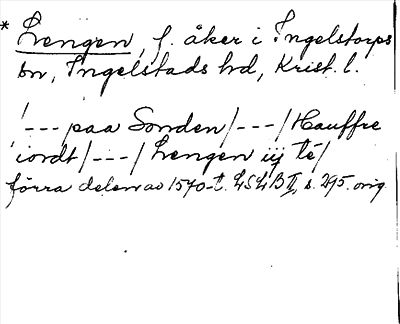 * Lengen, f. åker i Ingelstorps
sn, Ingelstads hd, Krist. l.
/---paa Sonden/---/Hauffre
iordt/---/Lengen iij té/
förra delen av 1570-t. LSLB II, s. 295. orig.